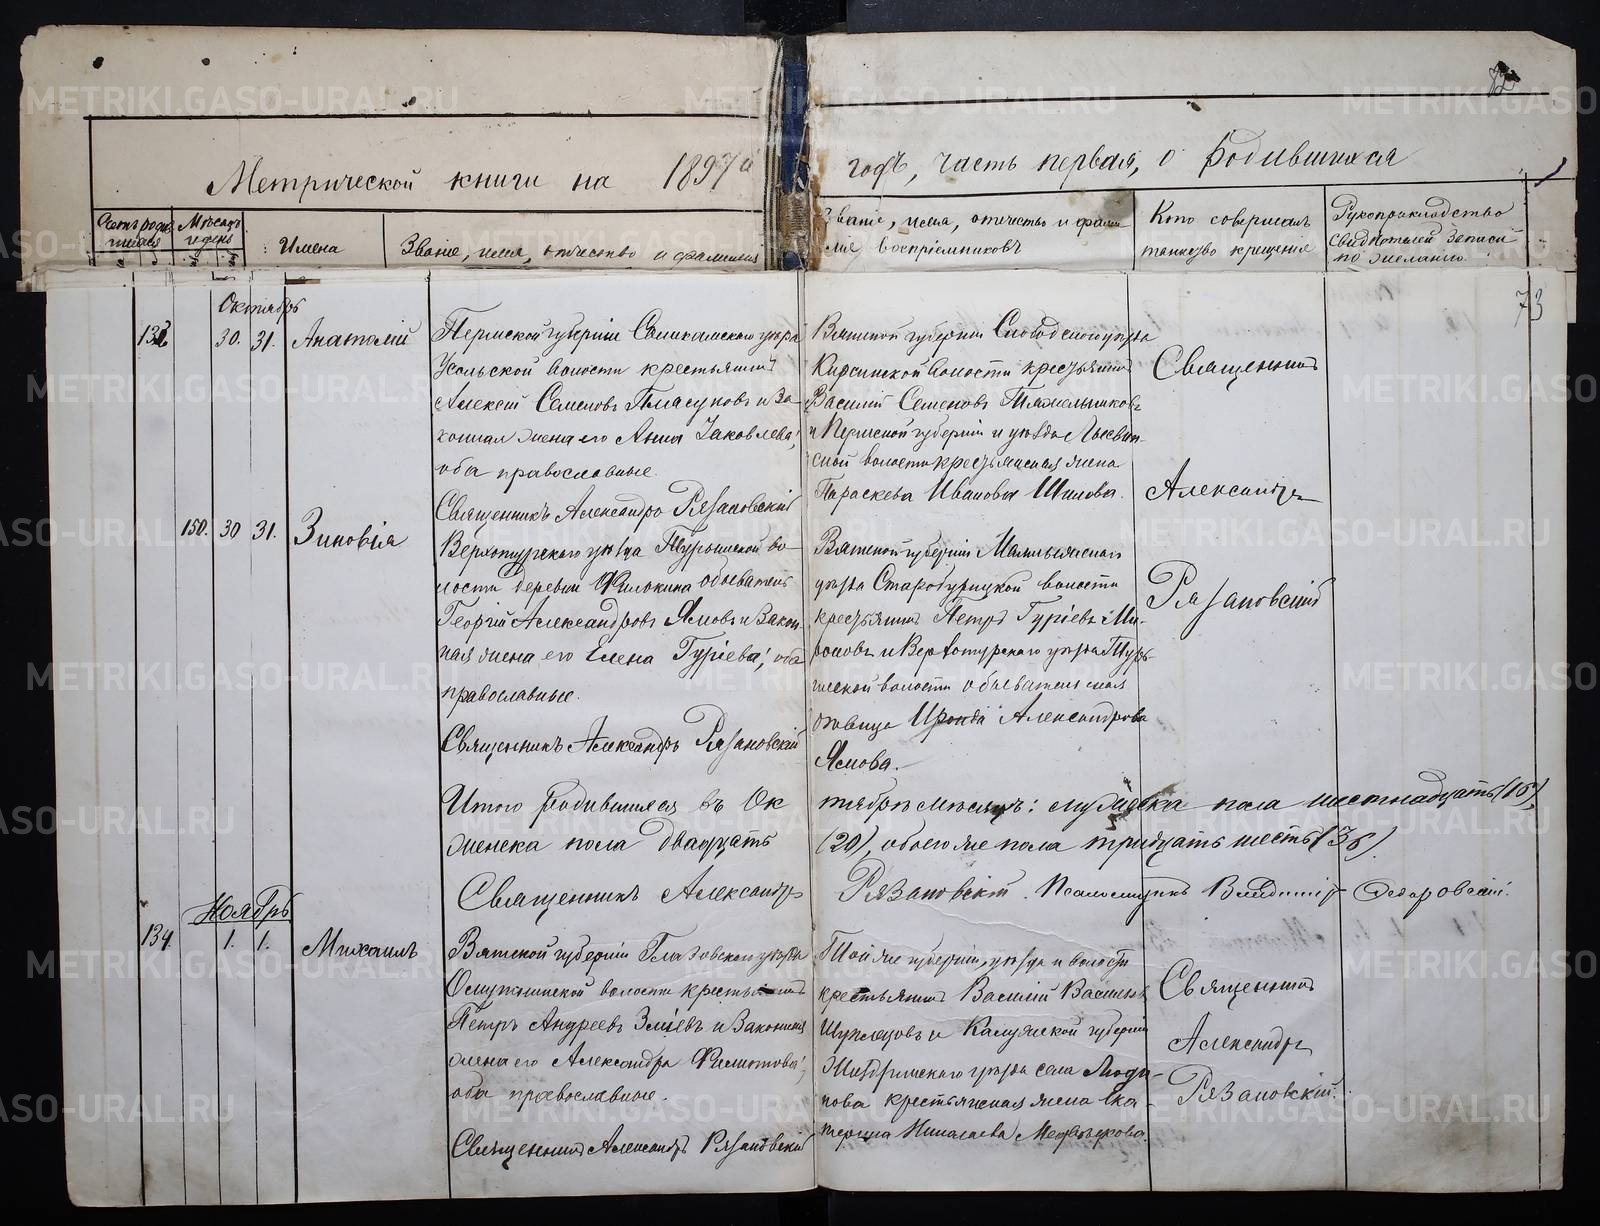 Метрической книги на 1897й годъ, часть первая, о родившихся
Имена
Званіе, имя, отчество и фамилія
Званіе, имя, отчество и фами
лія воспріемниковъ
Кто совершалъ
таинство крещенія
Рукоприкладство
свидѣтелей записи
по желанію.
73
Октябрь
30. 31. Анатолій
Пермской губерніи Соликамскаго уѣзда
Усольской волости крестьянинъ
Алексѣй Семеновъ Пласуновъ и за-
конная жена его Анна Іаковлева,
оба православные.
Священникъ Александръ Рязановскій
Вятской губерніи Слободского уѣзда
Кирсинской волости крестьянинъ
Василій Семеновъ Тяжельниковъ
и Пермской губерніи и уѣзда Лысвин-
ской волости крестьянская жена
Параскева Иванова Шилова.
Священникъ
Александръ
Рязановскій
150. 30 31. Зиновія
Верхотурскаго уѣзда Турьинской во-
лости деревни Филькина обыватель
Георгій Александровъ Ямовъ и закон-
ная жена его Елена Гуріева, оба
православные.
Священникъ Александръ Рязановскій
Вятской губерніи Малмыжскаго
уѣзда Старобурецкой волости
крестьянинъ Петръ Гуріевъ Ми-
роновъ и Верхотурскаго уѣзда Турь-
инской волости обывательская
дѣвица Ираида Александрова
Ямова.
Итого родившихся въ Октябрѣ мѣсяцѣ: мужеска пола шестнадцать (16),
женска пола двадцать (20), обоего же пола тридцать шесть (36).
Священникъ Александръ Рязановскій. Псаломщикъ
Ноябрь
134 1. 1. Михаилъ
Вятской губерніи Глазовскаго уѣзда
Омутнинской волости крестьянинъ
Петръ Андреевъ Зміевъ и законная
жена его Александра Филиппова,
оба православные.
Священникъ Александръ Рязановскій
Той же губерніи, уѣзда и волости
крестьянинъ Василій Васильевъ
и Калужской губерніи
Жиздринскаго уѣзда села Люди-
нова крестьянская жена Ека-
терина Николаева
Священникъ
Александръ
Рязановскій.
METRIKI.GASO-URAL.RU